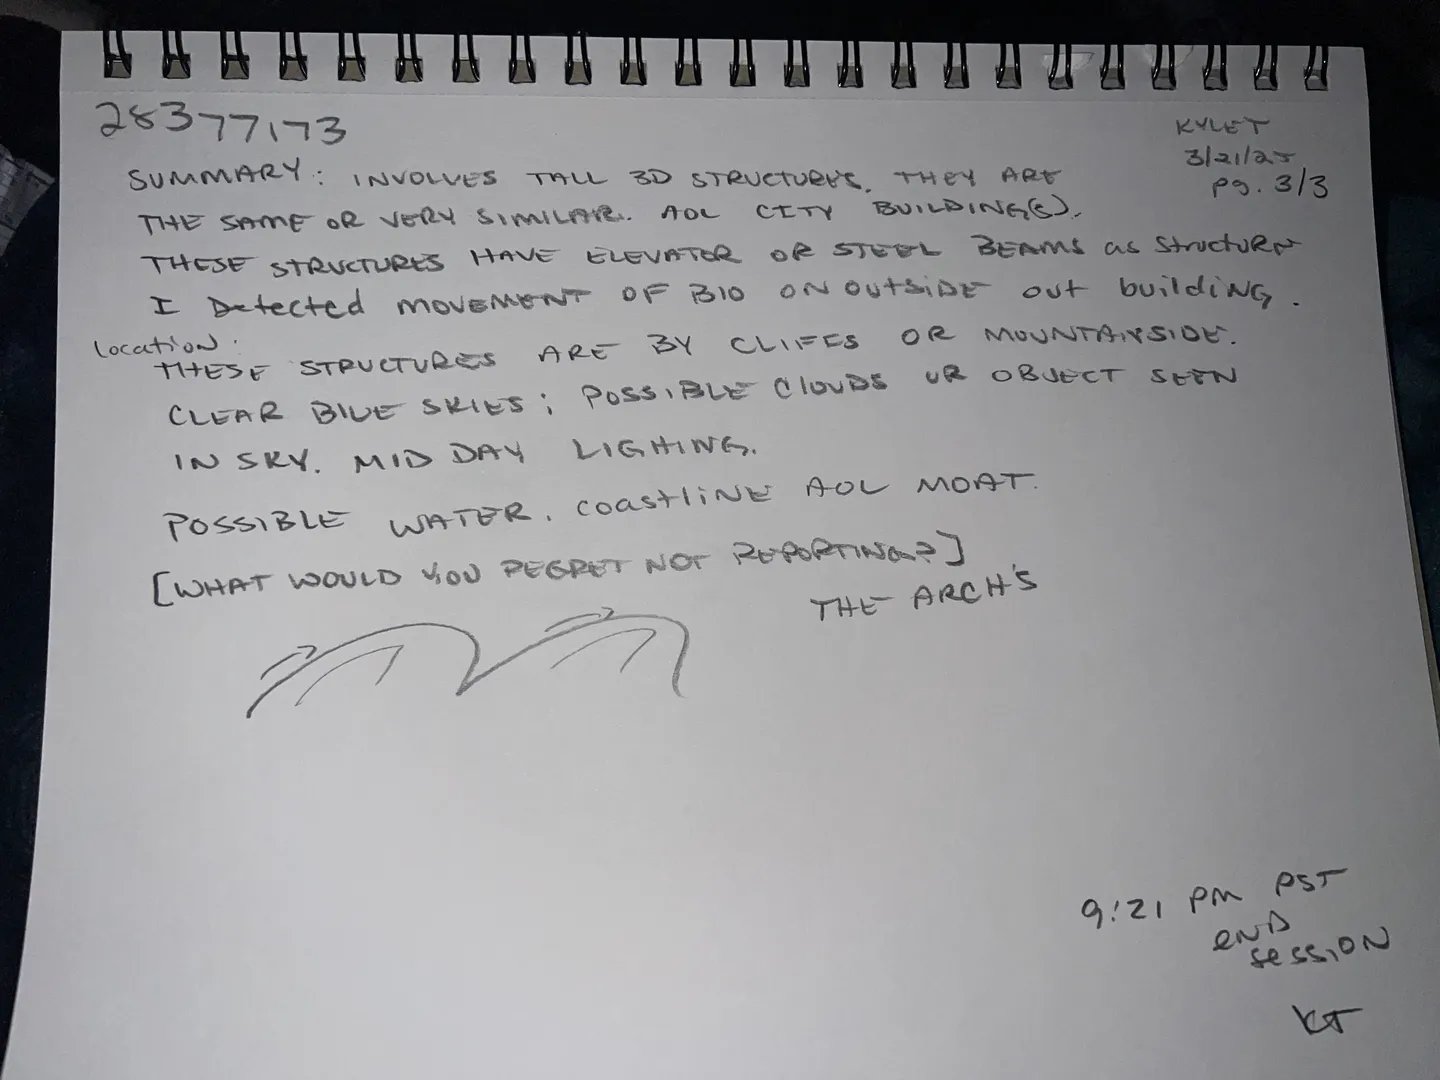 28377173
KYLET
3/21/25
pg. 3/3
SUMMARY: INVOLVES TALL 3D STRUCTURES. THEY ARE
THE SAME OR VERY SIMILAR. AOL CITY BUILDING(S).
THESE STRUCTURES HAVE ELEVATOR OR STEEL BEAMS as Structure
I Detected MOVEMENT OF BIO ON OUTSIDE OUt building.
Location:
THESE STRUCTURES ARE BY CLIFFS OR MOUNTAINSIDE.
CLEAR BLUE SKIES; POSSIBLE ClOUDS OR OBJECT SEEN
IN SKY. MID DAY LIGHING.
POSSIBLE WATER. COAStliNE AOL MOAT.
[WHAT WOULD YOU REGRET NOT REPORTING?]
THE ARCH'S
9:21 PM PST
END
SESSION
KT